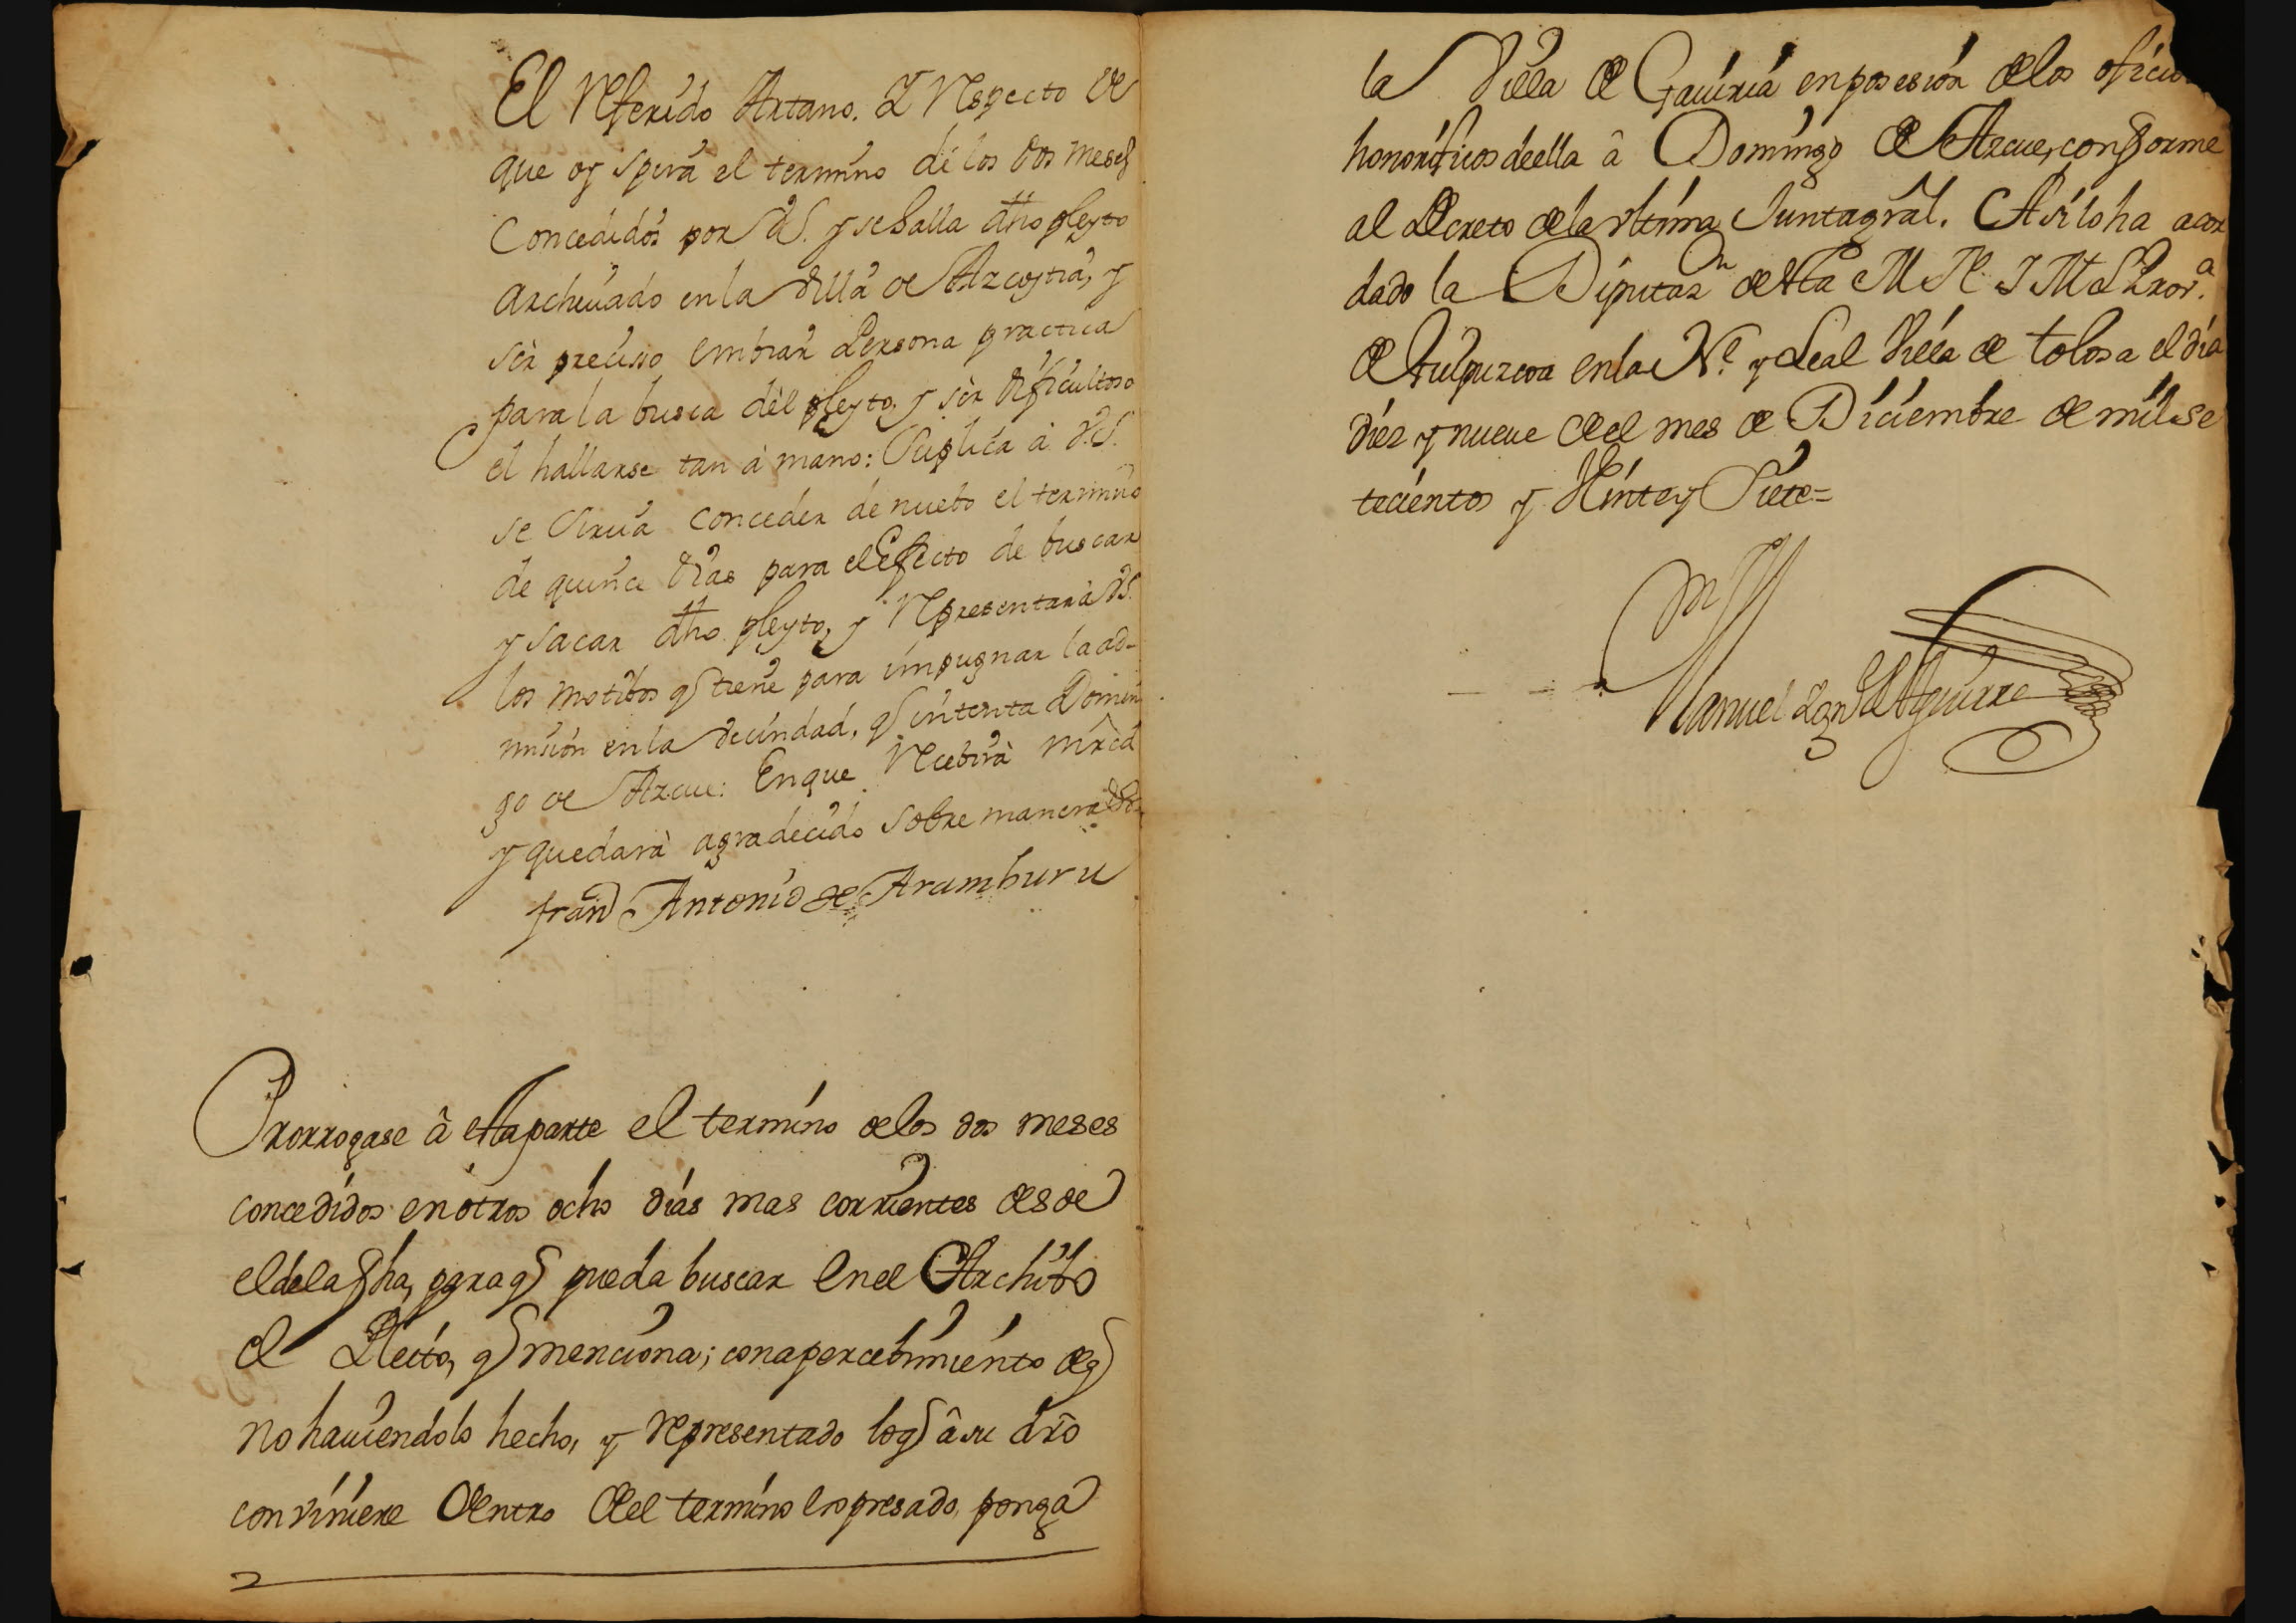 El Referido Artano. Y Respecto de
que oy spira el termino de los dos meses
Concedidos por VS. y se halla dho pleyto
archiuado en la Villa de Azcoytia, y
ser preciso embiar Persona practica
para la busca del pleyto, y ser dificultoso
el hallarse tan à mano: Suplica à V.S.
se Sirua conceder de nuebo el termino
de quince dias para el Efecto de buscar
y sacar dho pleyto, y Representar à VS.
los motibos q tiene para impugnar la ad-
mision en la Vecindad, q intenta Domin
go de Azcue: En que Recebirà mrcd
y quedarà agradecido sobre manera
fran Antonio de Aramburu
Prorrogase â esta parte el termino de los dos meses
concedidos en otros ocho dias mas corrientes desde
el de la fha, para q pueda buscar en el Archibo
el Pleito, q menciona; con apercebimiento de q
no hauiendolo hecho, y representado lo q â su dro
conviniere dentro de el termino expresado, ponga
la Villa de Gauiria en posesion de los oficio
honorificos de ella â Domingo de Azcue, conforme
al Decreto de la vltima Junta gral. Asi lo ha acor
dado la Diputaz.n de esta M N. Y M L Prov.a
de Guipuzcoa en la N.e y Leal Villa de Tolosa el dia
diez y nueue de el mes de Diciembre de mil se
tecientos y Vinte y Siete=
Manuel Ign de Aguirre